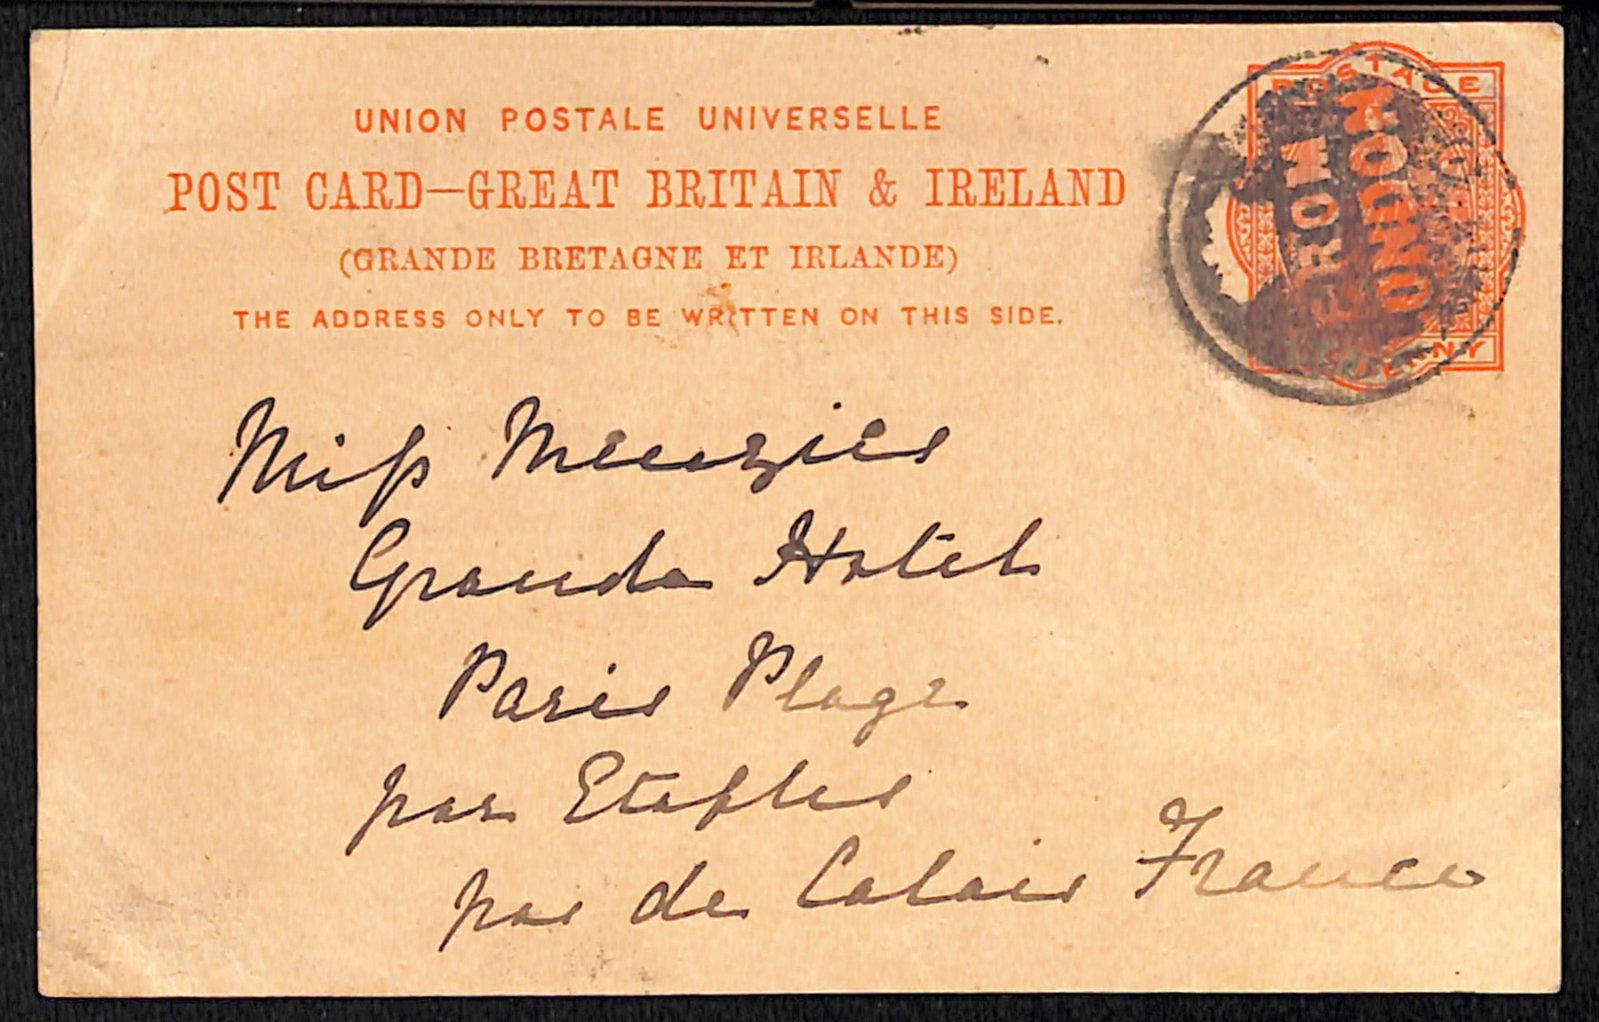 UNION POSTALE UNIVERSELLE
POST CARD—GREAT BRITAIN & IRELAND
(GRANDE BRETAGNE ET IRLANDE)
THE ADDRESS ONLY TO BE WRITTEN ON THIS SIDE.
POSTAGE
PENNY
LONDON
Miss Menzies
Grande Hotel
Paris Plage
par Etaples
pas de Calais France